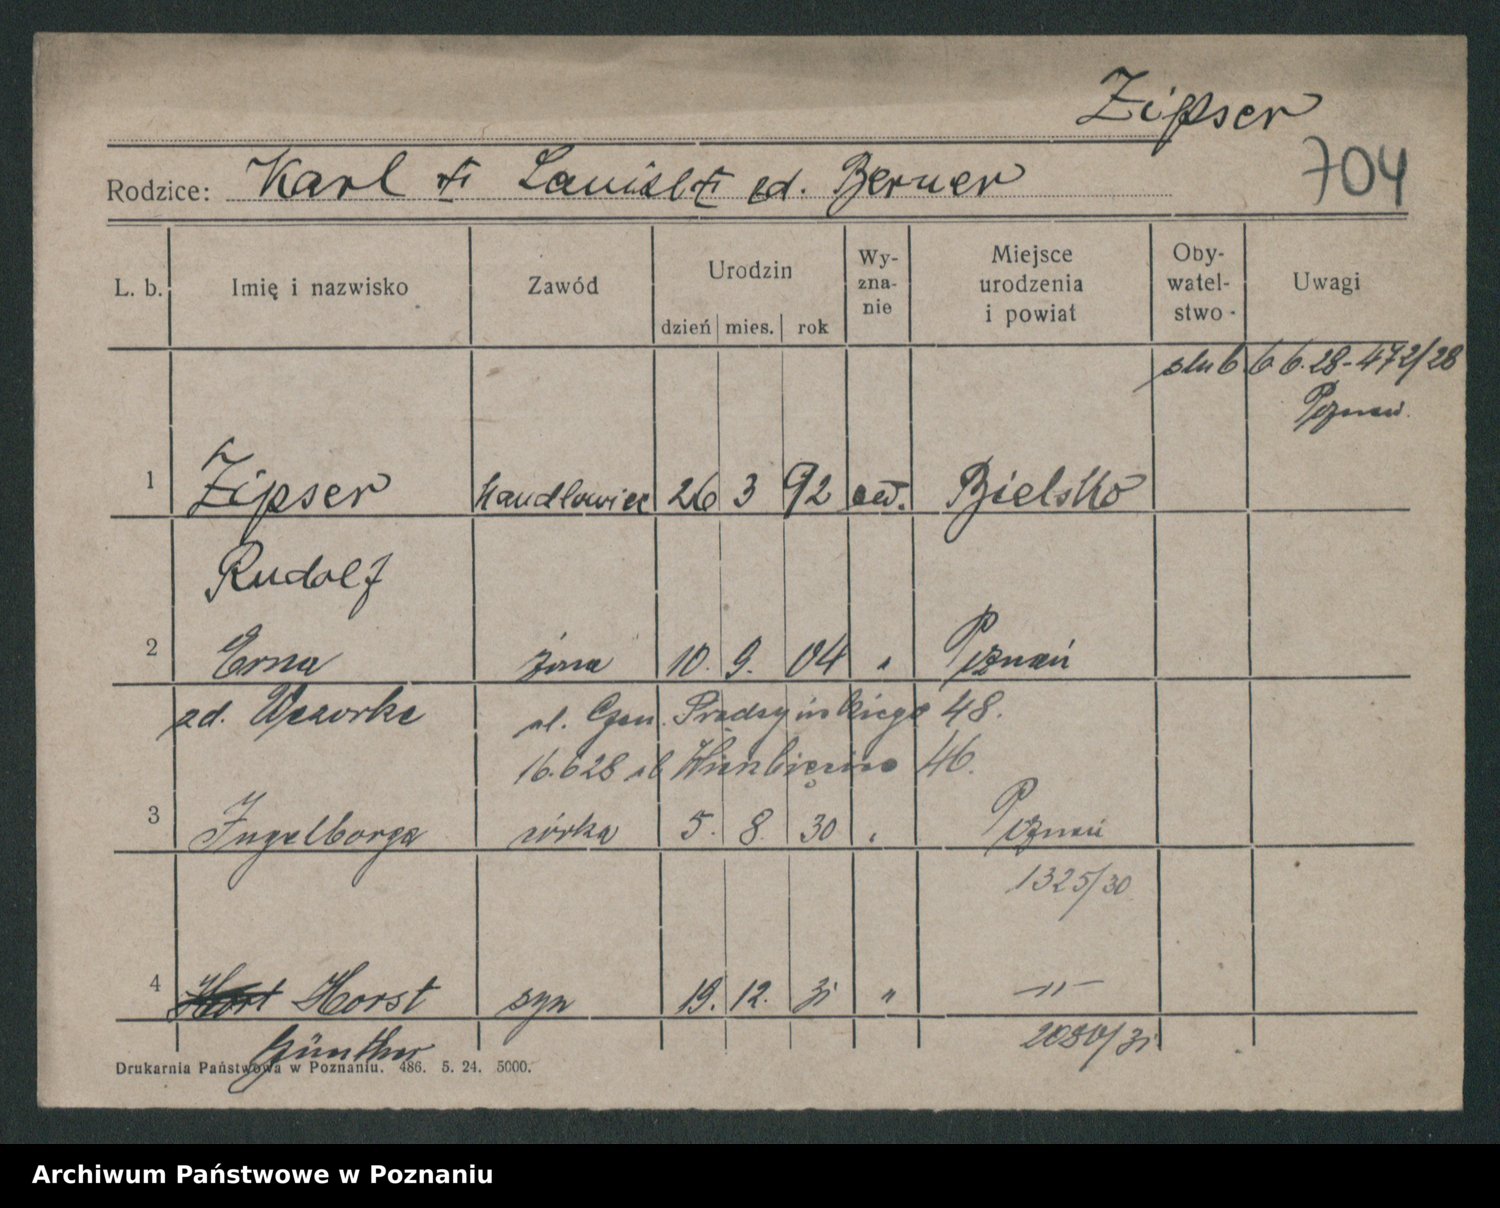 Zipser
Rodzice: Karl Berner
704
L. b. Imię i nazwisko Zawód Urodzin dzień mies. rok Wy-zna-nie Miejsce urodzenia i powiat Oby-watel-stwo Uwagi
ślub 6.6.28-472/28
Poznań
1 Zipser handlowiec 26 3 92 Bielsko
Rudolf
2 Erna żona 10. 9. 04 " Poznań
zd. ul. Gen. Prądzyńskiego 48.
16.6 28 ul 46.
3 Ingelborga córka 5. 8. 30 " Poznań
1325/30
4 Horst syn 19. 12. 31 " -"-
Günther 2080/31
Drukarnia Państwowa w Poznaniu. 486. 5. 24. 5000.
Archiwum Państwowe w Poznaniu